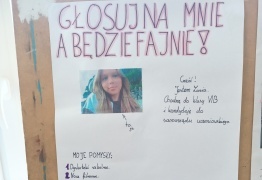 GŁOSUJ NA MNIE
A BĘDZIE FAJNIE!
Cześć!
Jestem Zuzia
Chodzę do klasy VIB
i kandyduję do
samorządu uczniowskiego
to ja
MOJE POMYSŁY:
1 Dyskoteki szkolne
2